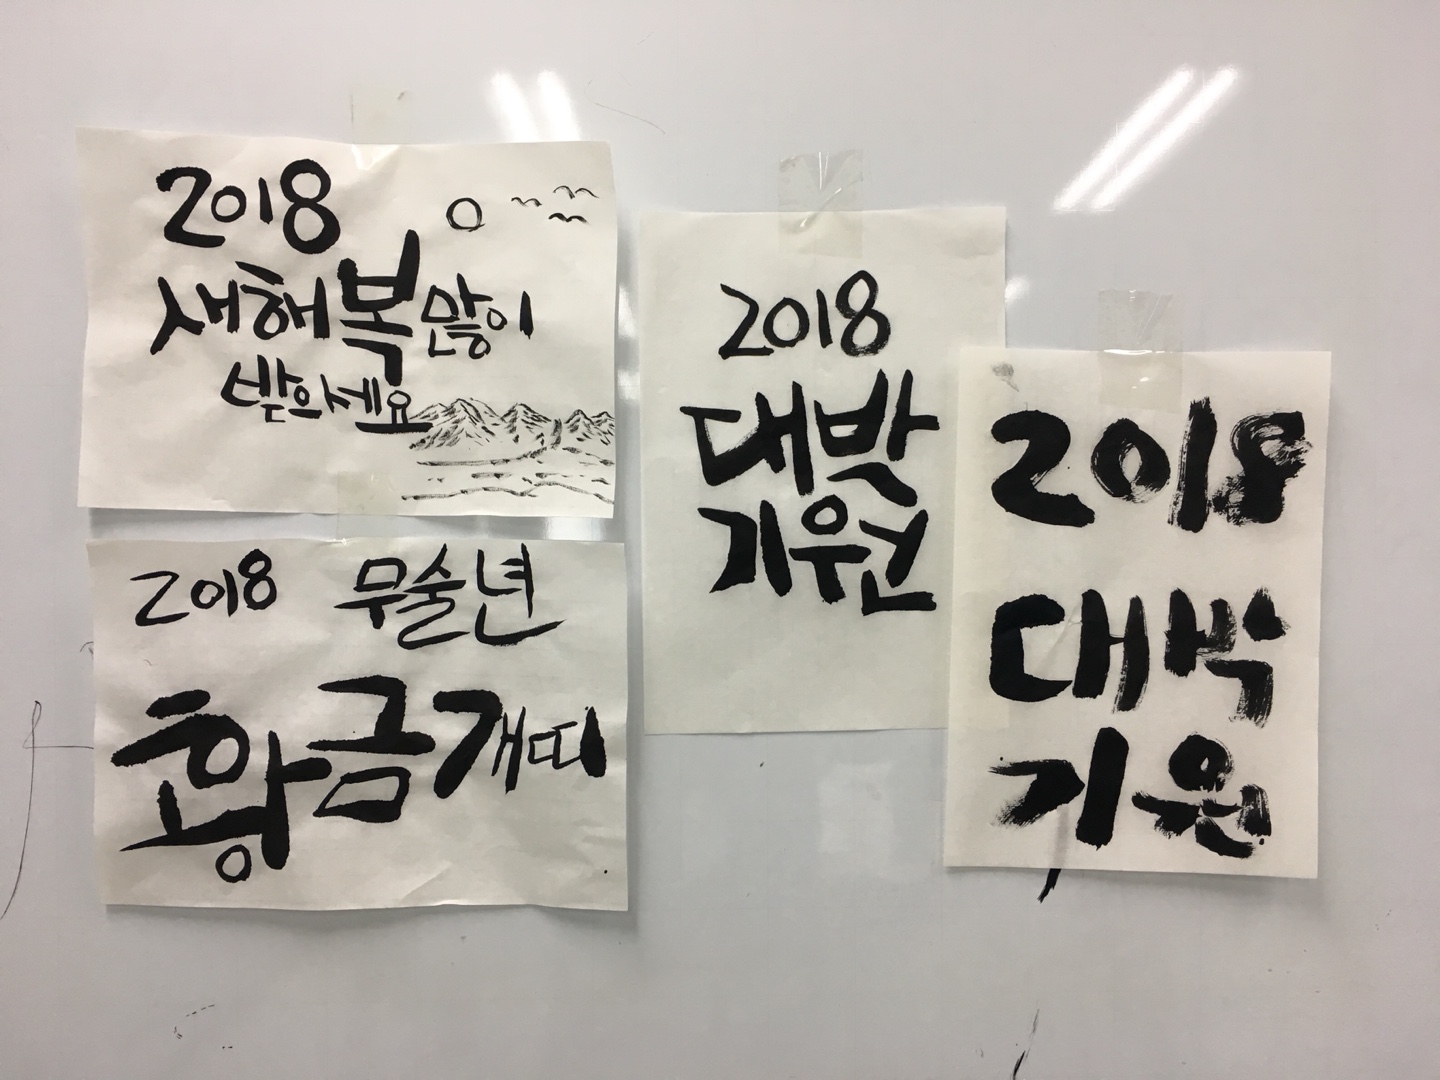 2018
새해 복 많이
받으세요
2018 무술년
황금개띠
2018
대박
기원
2018
대박
기원